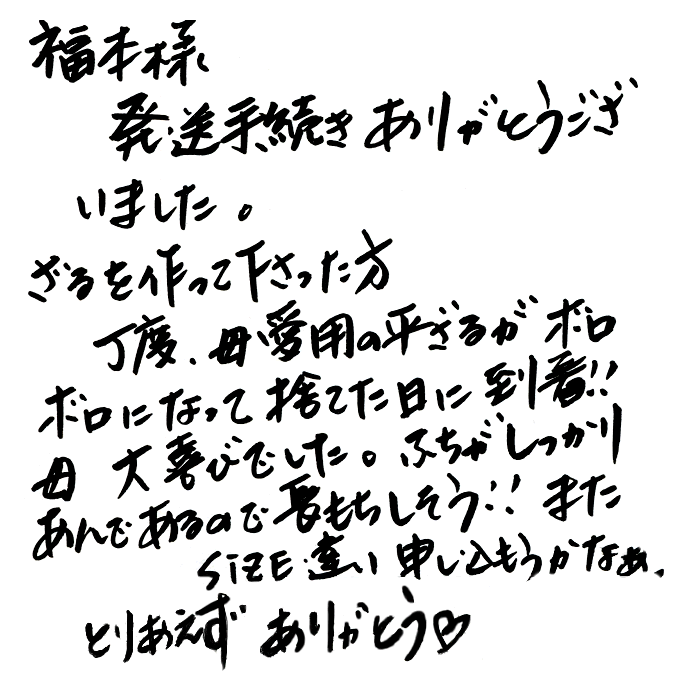 福本様
発送手続きありがとうござ
いました。
ざるを作って下さった方
丁度、母愛用の平ざるがボロ
ボロになって捨てた日に到着!!
母 大喜びでした。ふちがしっかり
あんであるので長もちしそう!! また
SiZE違い申し込もうかなぁ、
とりあえず ありがとう♡